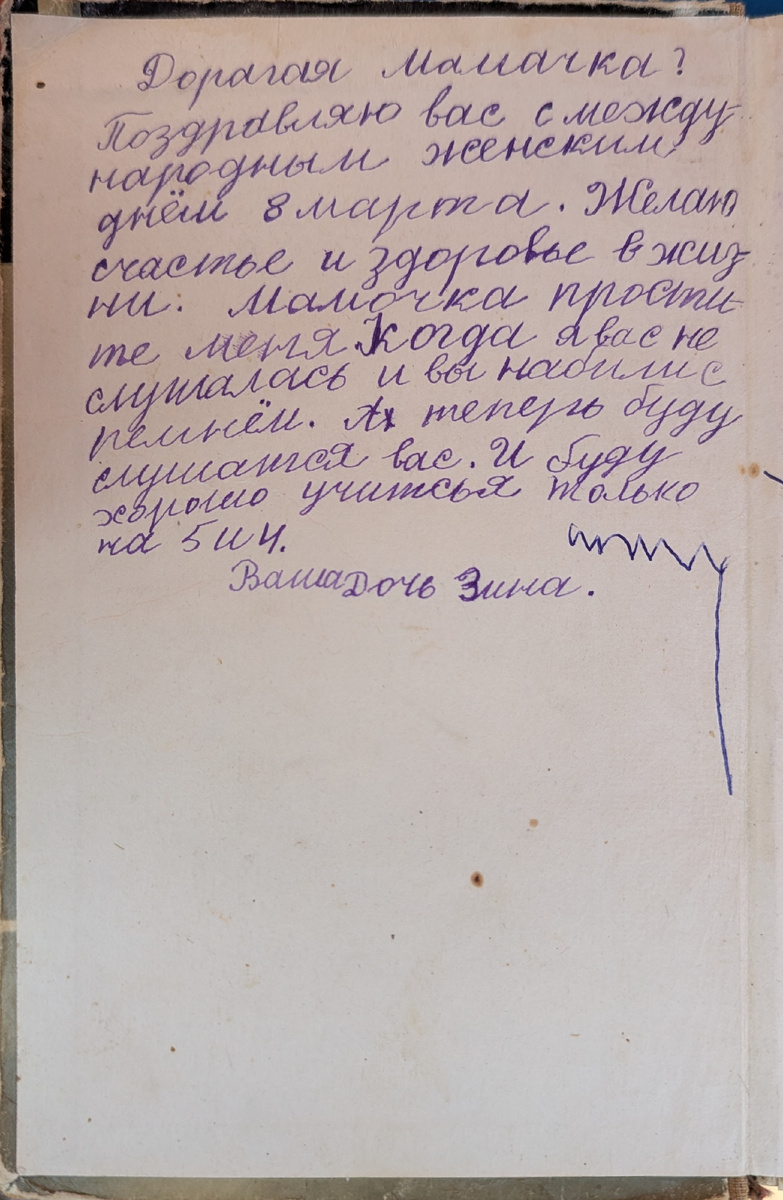 Дорагая Мамачка?
Поздравляю вас с между-
народным женским
днём 8 марта. Желаю
счастье и здоровье в жиз-
ни. Мамочка прости-
те меня. Когда я вас не
слушалась и вы
ремнём. теперь буду
слушатся вас. И буду
хорошо учитсья только
на 5 и 4.
Ваша Дочь Зина.